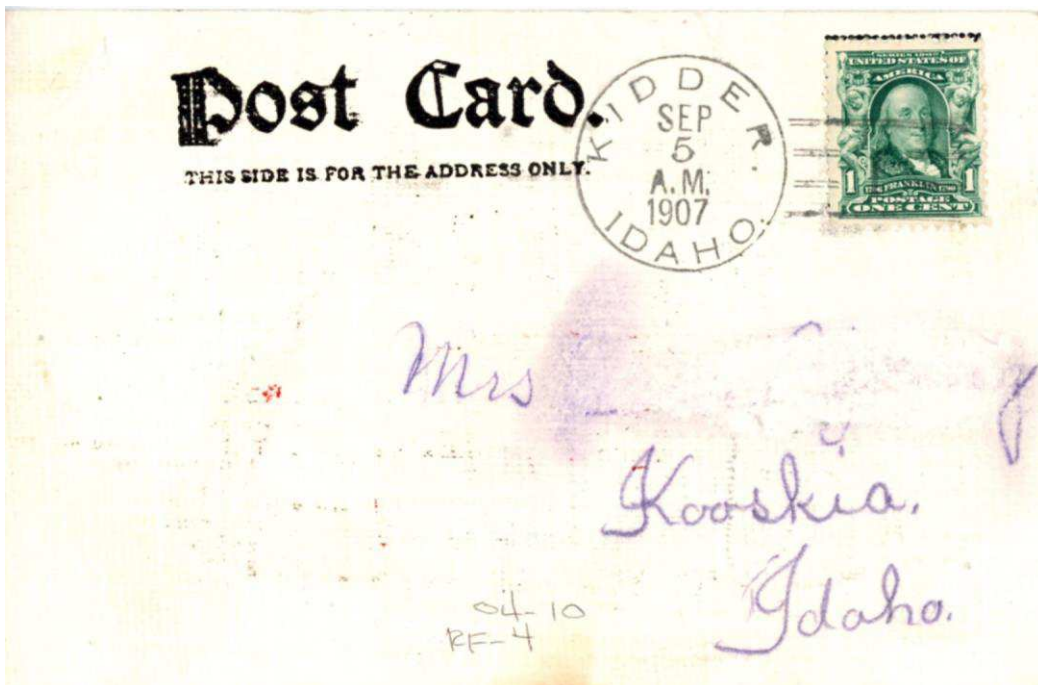 Post Card.
THIS SIDE IS FOR THE ADDRESS ONLY.
KIDDER. IDAHO.
SEP
5
A.M.
1907
SERIES 1902
UNITED STATES OF
AMERICA
1 1706 FRANKLIN 1790 1
POSTAGE
ONE CENT
Mrs
Kooskia,
Idaho.
04-10
RF-4